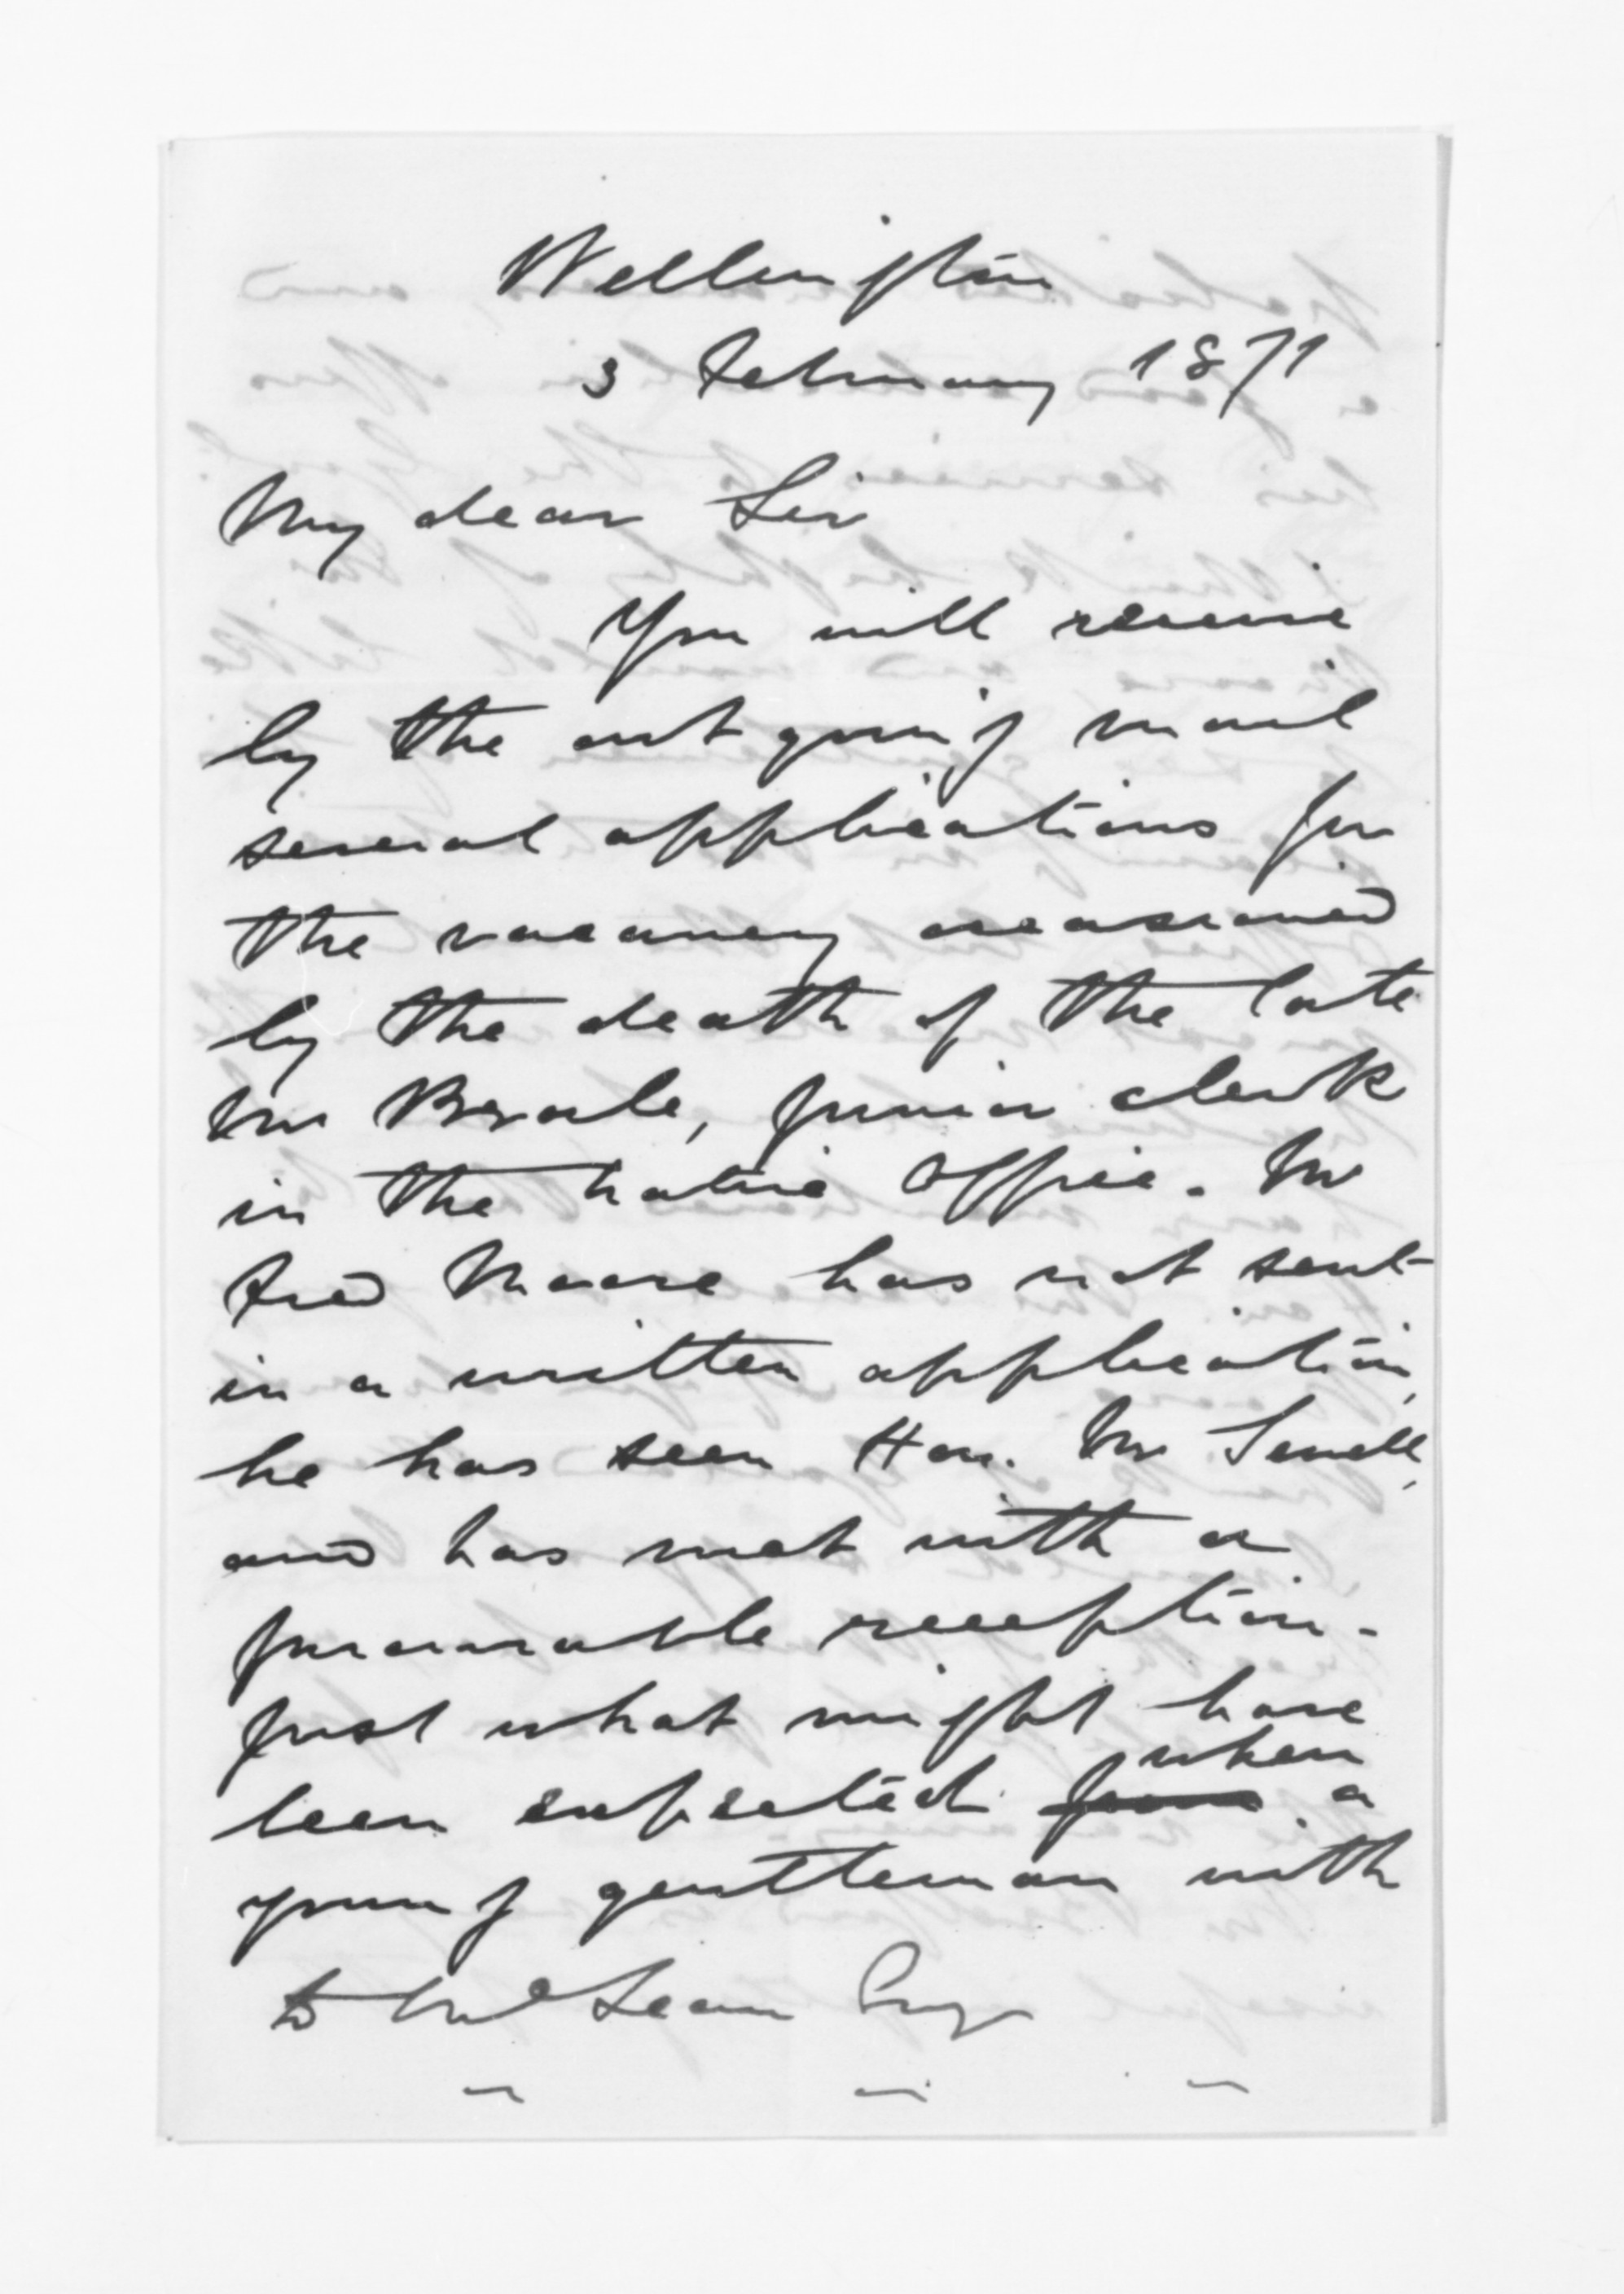 Wellington
3 February 1871
My dear Sir
You will receive
by the out going mail
several applications for
the vacancy occasioned
by the death of the late
Mr Beale, junior clerk
in the Native Office. Mr
Fred Moore has not sent
in a written application,
he has seen Hon. Mr Sewell,
and has met with a
favourable reception.
Just what might have
been expected from when a
young gentleman with
D McLean Esqr